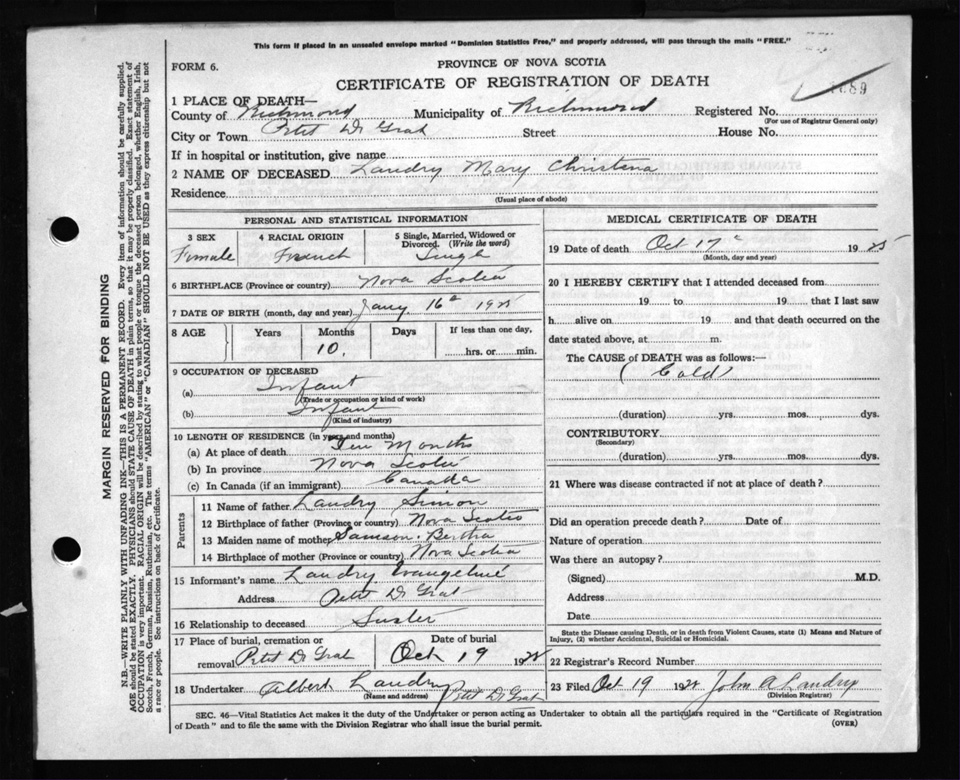 This form if placed in an unsealed envelope marked "Dominion Statistics Free," and properly addressed, will pass through the mails "FREE."
FORM 6.
PROVINCE OF NOVA SCOTIA
CERTIFICATE OF REGISTRATION OF DEATH
1 PLACE OF DEATH—
County of Richmond Municipality of Richmond Registered No.
(For use of Registrar General only)
City or Town Petit De Grat Street House No.
If in hospital or institution, give name
2 NAME OF DECEASED Landry Mary Christena
Residence
(Usual place of abode)
PERSONAL AND STATISTICAL INFORMATION
3 SEX 4 RACIAL ORIGIN 5 Single, Married, Widowed or Divorced. (Write the word)
Female French Single
6 BIRTHPLACE (Province or country) Nova Scotia
7 DATE OF BIRTH (month, day and year) Jany 16th 1925
8 AGE Years Months Days If less than one day,
10. hrs. or min.
9 OCCUPATION OF DECEASED
(a) Infant
(Trade or occupation or kind of work)
(b) Infant
(Kind of industry)
10 LENGTH OF RESIDENCE (in years and months)
(a) At place of death Ten Months
(b) In province Nova Scotia
(c) In Canada (if an immigrant) Canada
Parents
11 Name of father Landry Simon
12 Birthplace of father (Province or country) Nova Scotia
13 Maiden name of mother Samson Bertha
14 Birthplace of mother (Province or country) Nova Scotia
15 Informant's name Landry Evangeline
Address Petit De Grat
16 Relationship to deceased Sister
17 Place of burial, cremation or removal Petit De Grat Date of burial Oct 19 1925
18 Undertaker Albert Landry Petit De Grat
(Name and address)
MEDICAL CERTIFICATE OF DEATH
19 Date of death Oct 17th 1925
(Month, day and year)
20 I HEREBY CERTIFY that I attended deceased from
19 to 19 that I last saw
h alive on 19 and that death occurred on the
date stated above, at m.
The CAUSE of DEATH was as follows:—
(Cold)
(duration) yrs. mos. dys.
CONTRIBUTORY
(Secondary)
(duration) yrs. mos. dys.
21 Where was disease contracted if not at place of death?
Did an operation precede death? Date of
Nature of operation
Was there an autopsy?
(Signed) M.D.
Address
Date
State the Disease causing Death, or in death from Violent Causes, state (1) Means and Nature of Injury, (2) whether Accidental, Suicidal or Homicidal.
22 Registrar's Record Number
23 Filed Oct 19 1925 John A Landry
(Division Registrar)
SEC. 46—Vital Statistics Act makes it the duty of the Undertaker or person acting as Undertaker to obtain all the particulars required in the "Certificate of Registration
of Death" and to file the same with the Division Registrar who shall issue the burial permit. (OVER)
MARGIN RESERVED FOR BINDING
N.B.—WRITE PLAINLY WITH UNFADING INK—THIS IS A PERMANENT RECORD. Every item of information should be carefully supplied.
AGE should be stated EXACTLY. PHYSICIANS should STATE CAUSE OF DEATH in plain terms, so that it may be properly classified. Exact statement of
OCCUPATION is very important. RACIAL ORIGIN will be described by stating to what people or tongue the deceased person belonged, whether English, Irish,
Scotch, French, German, Russian, Ruthenian, etc. The terms "AMERICAN" or "CANADIAN" SHOULD NOT BE USED as they express citizenship but not
a race or people. See instructions on back of Certificate.